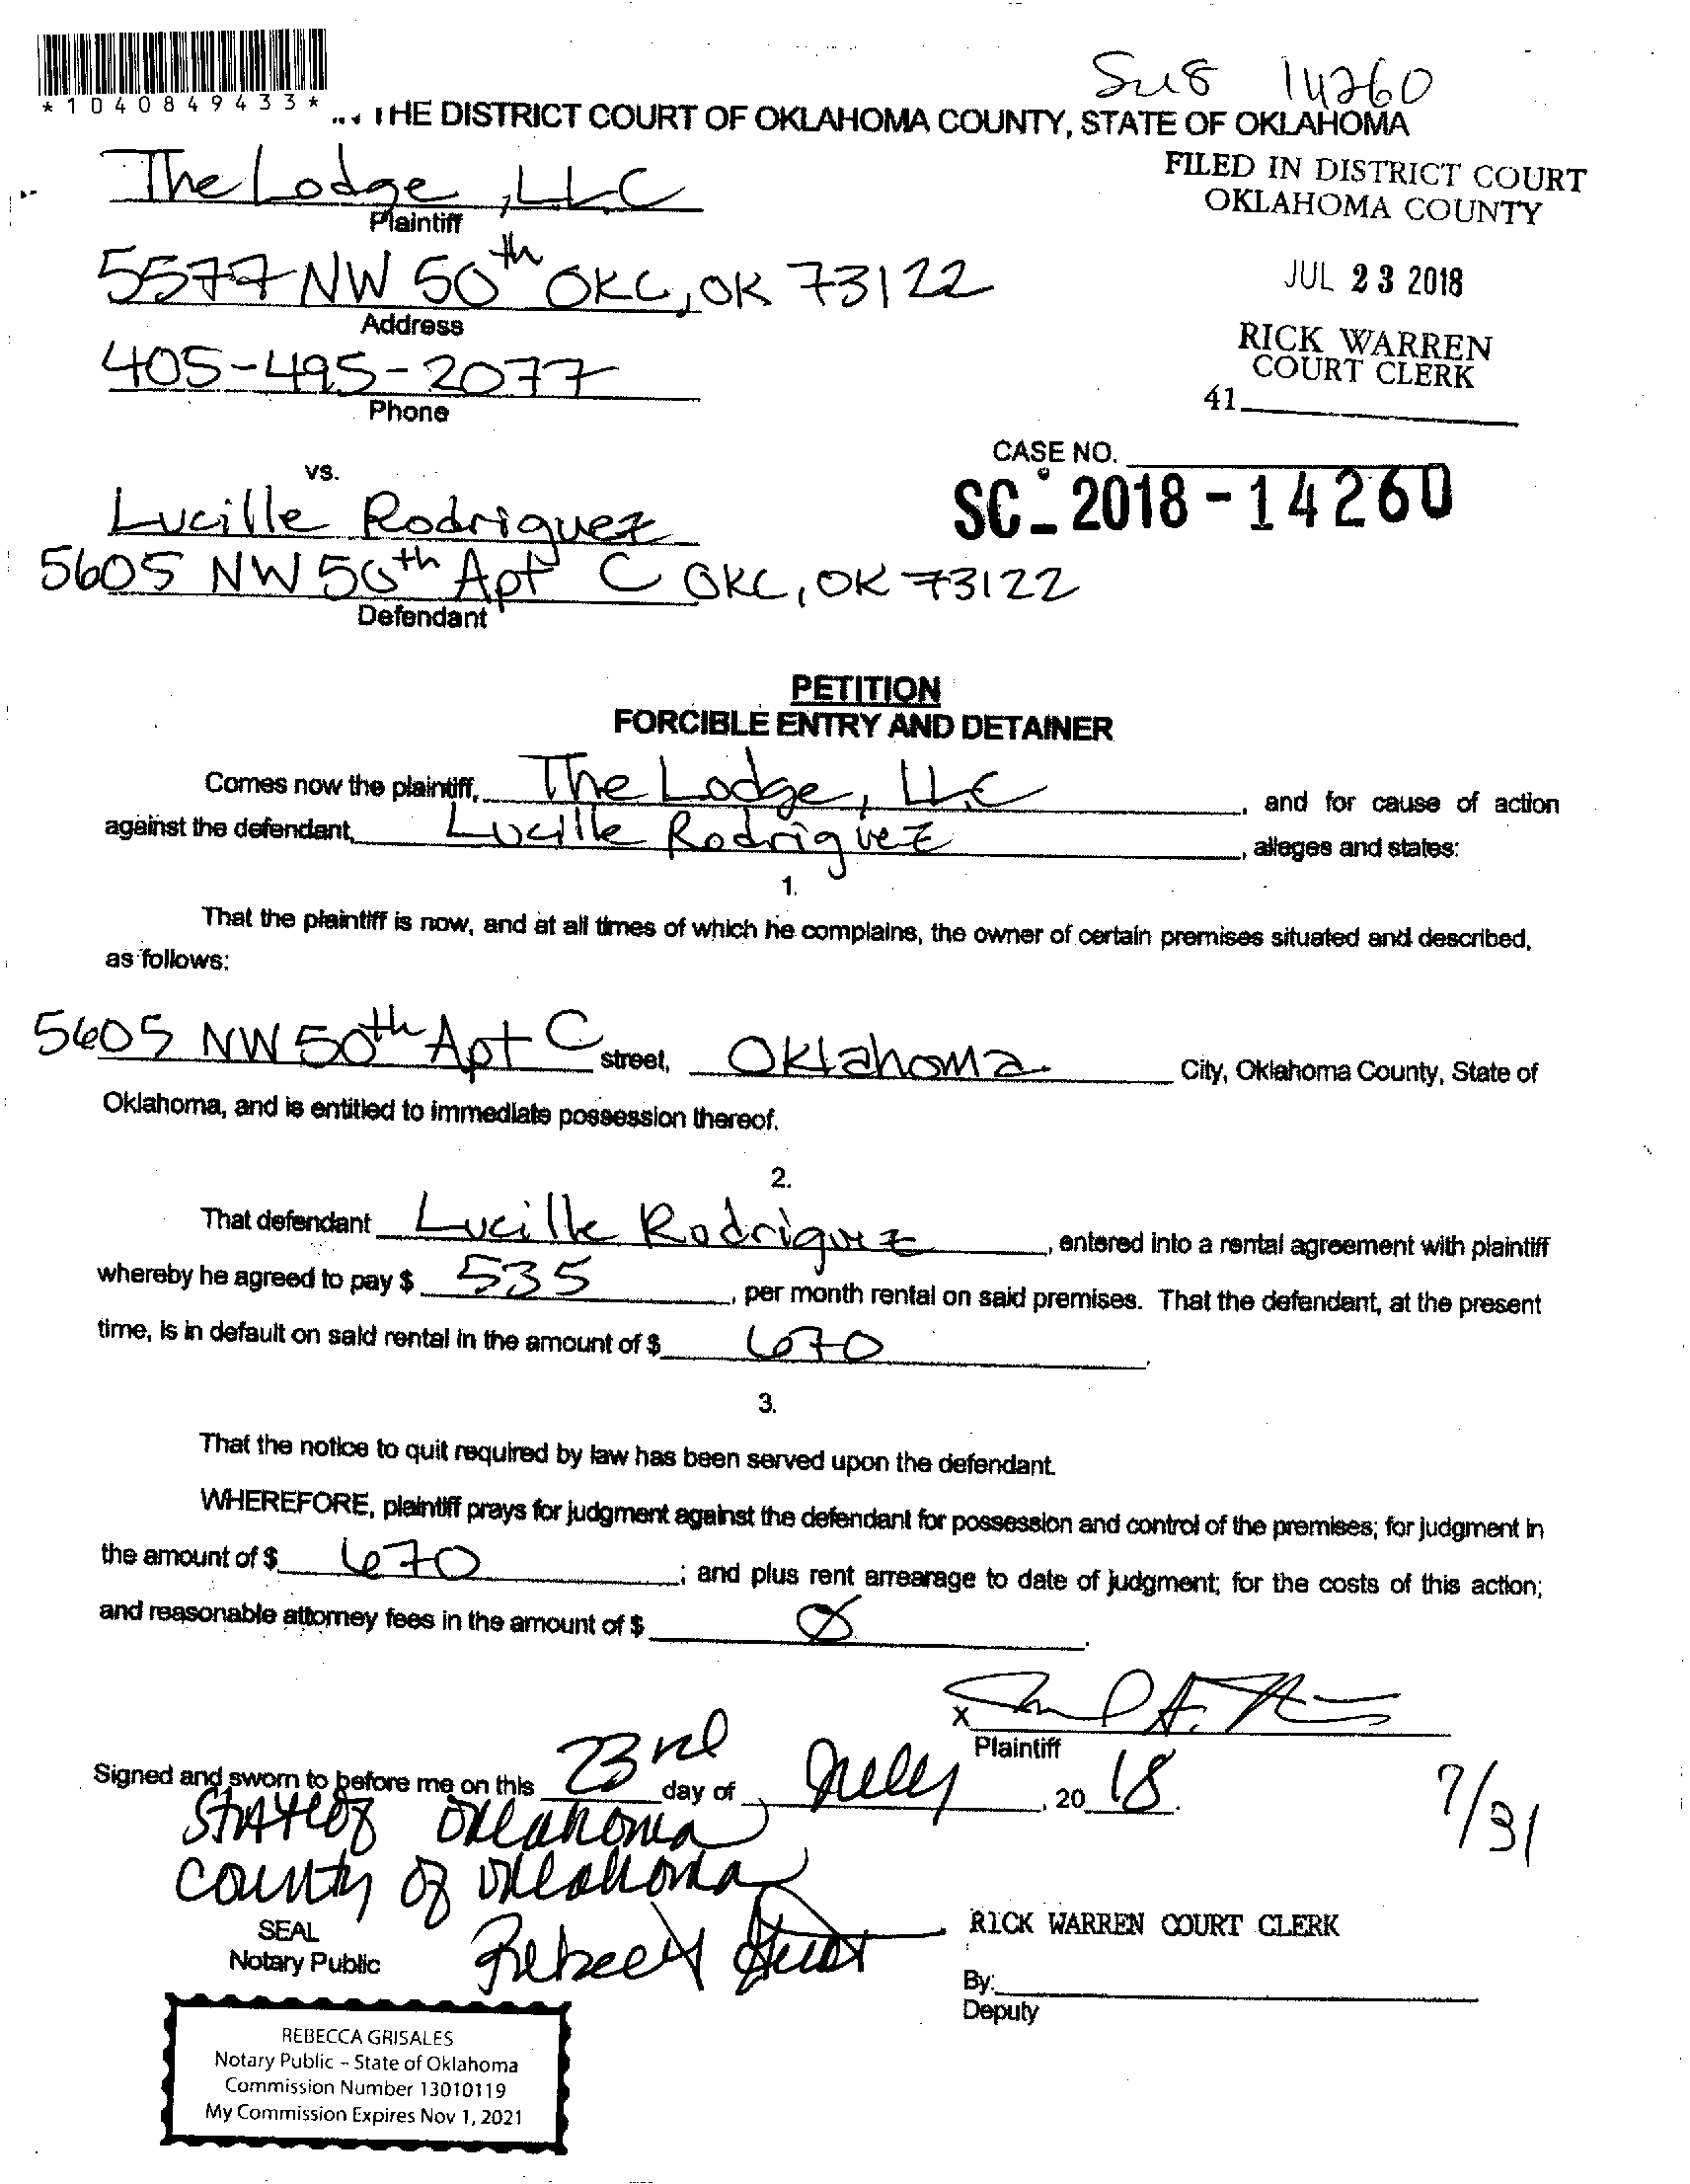 Su8 14260
*1040849433*
THE DISTRICT COURT OF OKLAHOMA COUNTY, STATE OF OKLAHOMA
The Lodge, LLC
Plaintiff
FILED IN DISTRICT COURT
OKLAHOMA COUNTY
5577 NW 50th OKC, OK 73122
Address
JUL 23 2018
405-495-2077
Phone
RICK WARREN
COURT CLERK
41
CASE NO.
SC-2018-14260
vs.
Lucille Rodriguez
5605 NW 50th Apt C OKC, OK 73122
Defendant
PETITION
FORCIBLE ENTRY AND DETAINER
Comes now the plaintiff, The Lodge, LLC, and for cause of action
against the defendant, Lucille Rodriguez, alleges and states:
1.
That the plaintiff is now, and at all times of which he complains, the owner of certain premises situated and described,
as follows:
5605 NW 50th Apt C street, Oklahoma City, Oklahoma County, State of
Oklahoma, and is entitled to immediate possession thereof.
2.
That defendant Lucille Rodriguez, entered into a rental agreement with plaintiff
whereby he agreed to pay $ 535, per month rental on said premises. That the defendant, at the present
time, is in default on said rental in the amount of $ 670.
3.
That the notice to quit required by law has been served upon the defendant.
WHEREFORE, plaintiff prays for judgment against the defendant for possession and control of the premises; for judgment in
the amount of $ 670; and plus rent arrearage to date of judgment; for the costs of this action;
and reasonable attorney fees in the amount of $ Ø.
X
Plaintiff
Signed and sworn to before me on this 23rd day of July, 2018.
7/31
State of Oklahoma
County of Oklahoma
SEAL
Notary Public
RICK WARREN COURT CLERK
By:
Deputy
REBECCA GRISALES
Notary Public - State of Oklahoma
Commission Number 13010119
My Commission Expires Nov 1, 2021